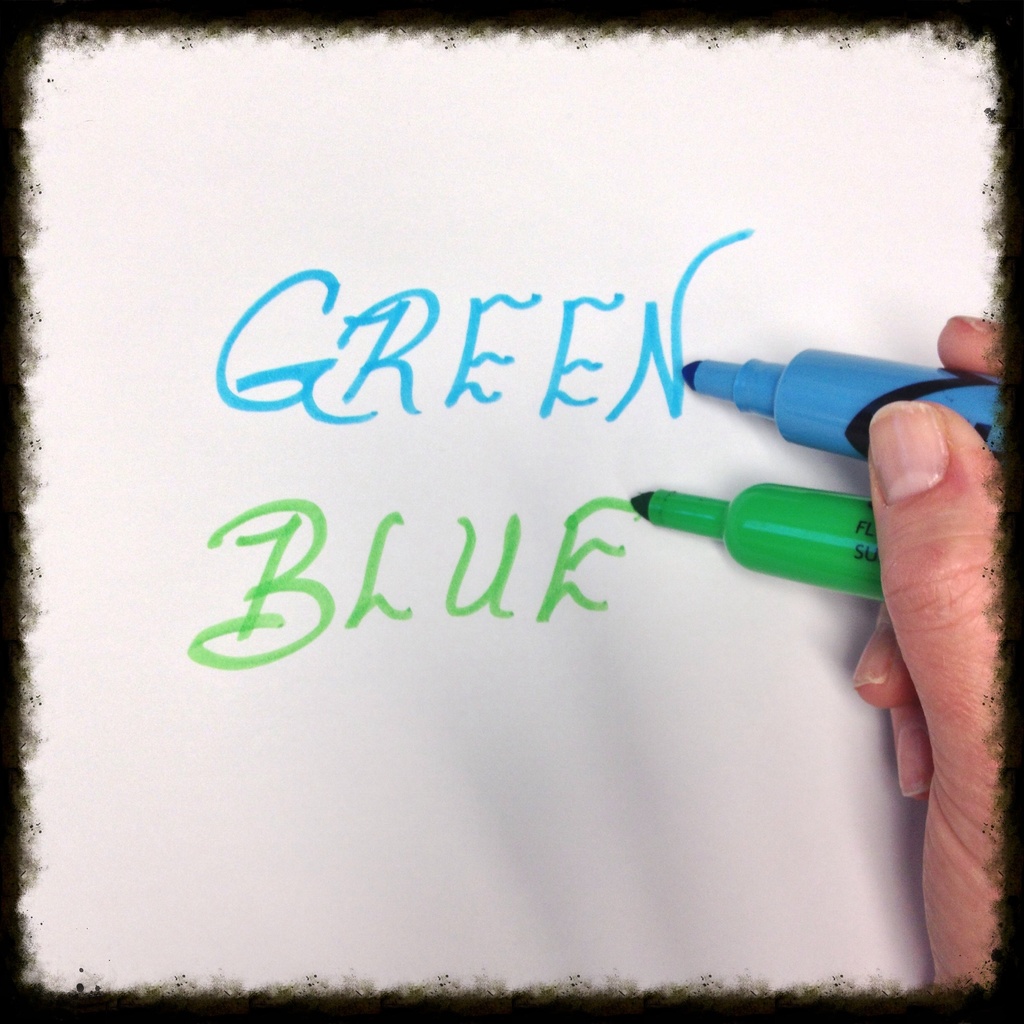 GREEN
BLUE
FL
SU